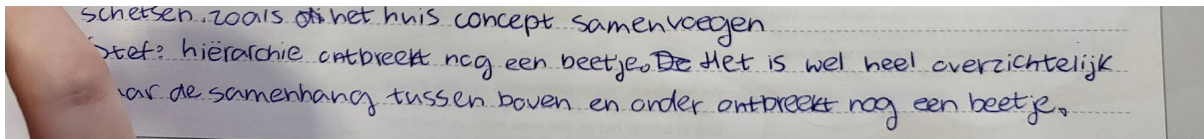 schetsen. zoals het huis concept samenvoegen
Stef: hiërarchie ontbreekt nog een beetje. Het is wel heel overzichtelijk
ar de samenhang tussen boven en onder ontbreekt nog een beetje.